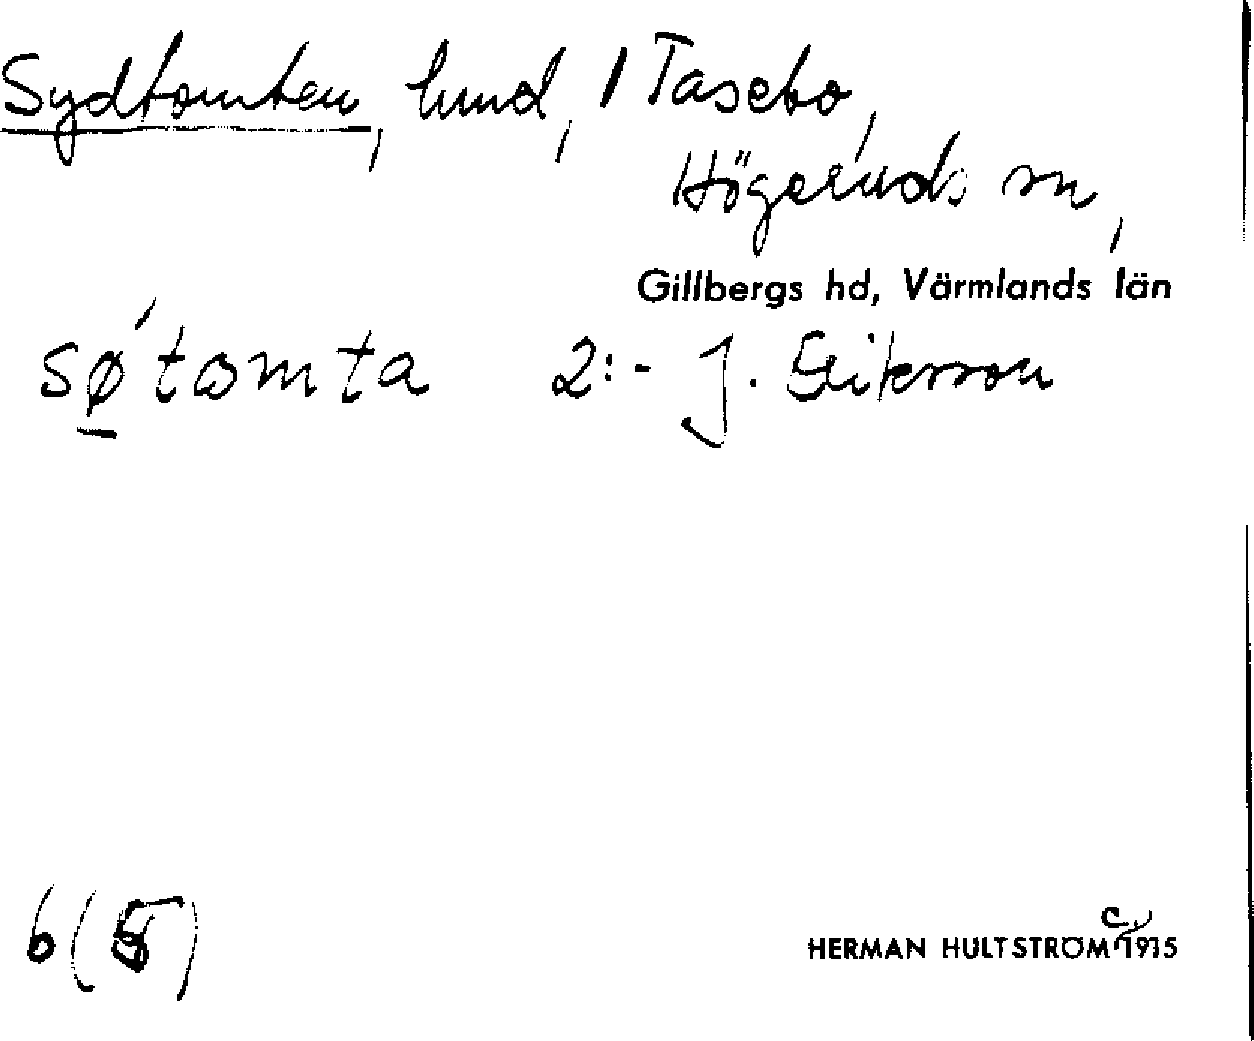 Sydtomten, lund, 1 Tasebo,
Högeruds sn,
Gillbergs hd, Värmlands län
sø̱´tomta 2:- J. Eriksson
6(5)
HERMAN HULTSTRÖM C 1915